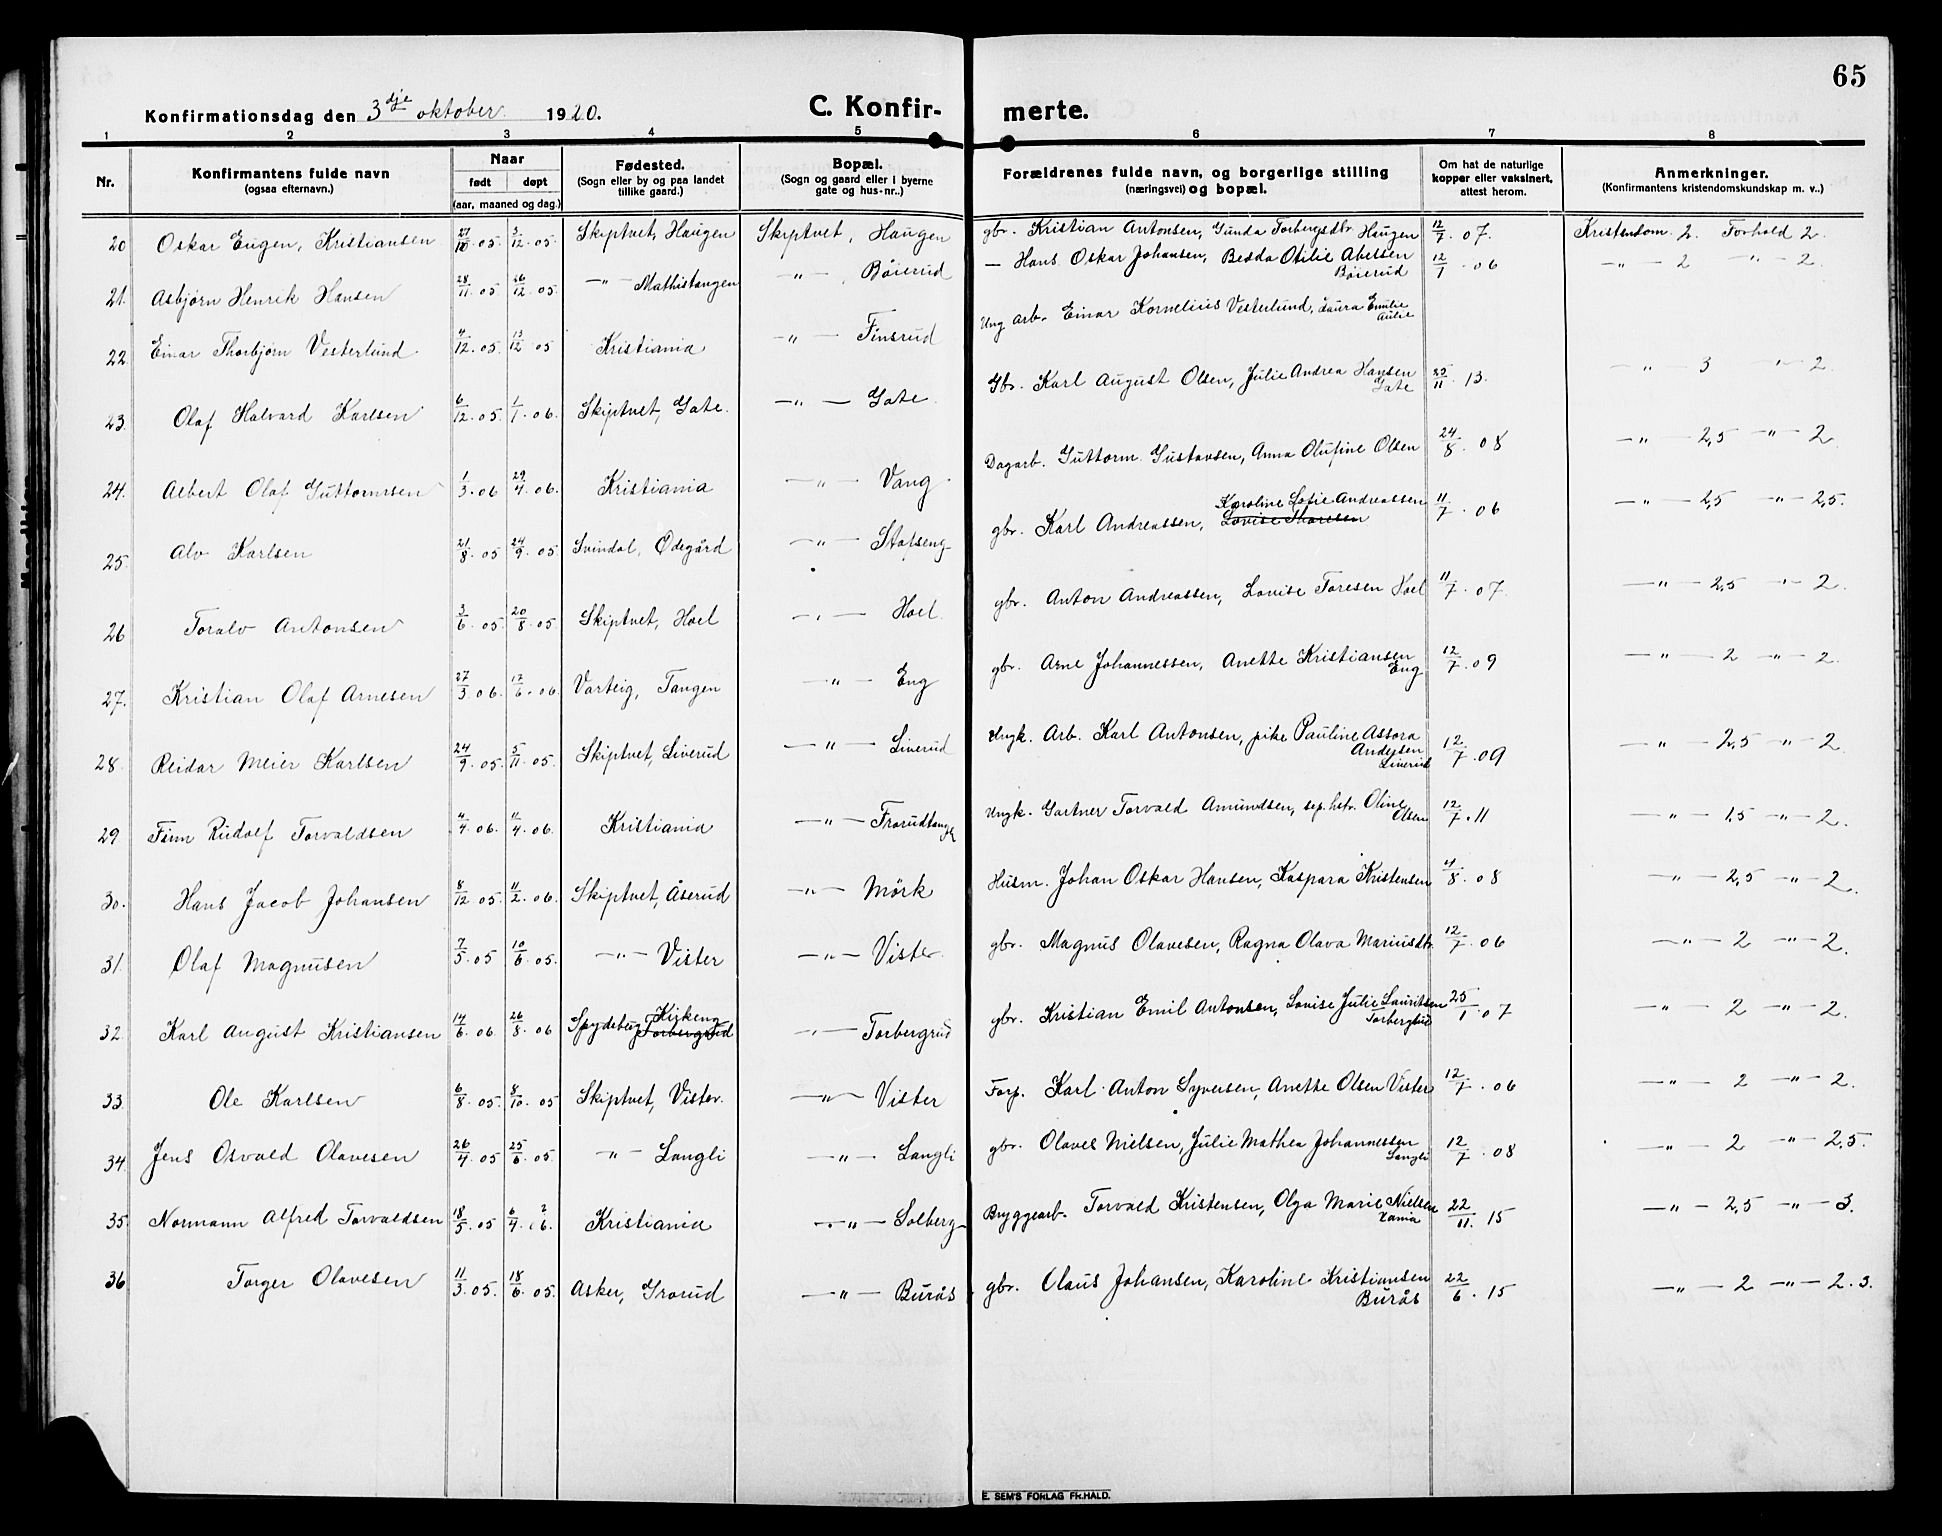 65
Konfirmationsdag den 3dje oktober 1920. C. Konfir- merte.
1 2 3 4 5 6 7 8
Nr. Konfirmantens fulde navn (ogsaa efternavn.) Naar født døpt (aar, maaned og dag.) Fødested. (Sogn eller by og paa landet tillike gaard.) Bopæl. (Sogn og gaard eller i byerne gate og hus-nr..) Forældrenes fulde navn, og borgerlige stilling (næringsvei) og bopæl. Om hat de naturlige kopper eller vaksinert, attest herom. Anmerkninger. (Konfirmantens kristendomskundskap m. v..)
20 Oskar Eugen, Kristiansen 27/10.05 3/12.05. Skiptvet, Haugen Skiptvet, Haugen gbr. Kristian Antonsen, Gunda Torbergsdtr. Haugen 12/7.07. Kristendom 2. Forhold 2.
21. Asbjørn Henrik Hansen 28/11.05 26/12.05. —"— Mathistangen —"— Böierud — Hans Oskar Johansen, Bedda Otilie Abelsen Böierud 12/1.06 —"— 2 —"— 2.
22. Einar Thorbjørn Vesterlund 4/12.05. 13/12 05 Kristiania —"— Finsrud Ung arb. Einar Kornelius Vesterlund, Laura Emilie Aulie
23. Olaf Halvard Karlsen 6/12.05. 1/1.06. Skiptvet, Gate. —"— Gate. Gbr. Karl August Olsen, Julie Andrea Hansen Gate 25/11.13. —"— 3 —"— 2.
24. Albert Olaf Guttormsen 1/3.06 29/4.06. Kristiania —"— Vang Dagarb. Guttorm Gustavsen, Anna Olufine Olsen 24/8.08 —"— 2,5 —"— 2
25. Alv Karlsen 21/8.05 24/9.05 Svindal, Ødegård —"— Stafseng gbr. Karl Andreassen, Karoline Lofie Andreassen Lovise Thoresen 11/7.06 —"— 2,5 —"— 2,5.
26 Toralv Antonsen 3/6.05. 20/8.05. Skiptvet, Hoel —"— Hoel. gbr. Anton Andreassen, Lovise Toresen Hoel 11/7.07. —"— 2,5 —"— 2.
27. Kristian Olaf Arnesen 27/3.06. 17/6.06. Varteig, Tangen —"— Eng gbr. Arne Johannessen, Anette Kristiansen Eng 12/7.09 —"— 2 —"— 2.
28. Reidar Meier Karlsen 24/9.05. 5/11.05. Skiptvet, Liverud —"— Liverud Ungk. Arb. Karl Antonsen, pike Pauline Assora Andersen Liverud 12/7.09 —"— 2,5 —"— 2.
29 Finn Rudolf Torvaldsen 4/4.06. 11/4.06. Kristiania —"— Frorudtangk Ungk. Gartner Torvald Amundsen, sep. hstr. Oline Olsen 12/7.11 —"— 1,5 —"— 2.
30. Hans Jacob Johansen 8/12.05. 11/2.06. Skiptvet, Åserud —"— Mörk Husm. Johan Oskar Hansen, Kaspara Kristensen 4/8.08 —"— 2,5 —"— 2.
31. Olaf Magnusen 7/5.05 10/6.05. —"— Vister —"— Vister. gbr. Magnus Olavesen, Ragna Olava Mariusdtr. 12/7.06 —"— 2 —"— 2.
32. Karl August Kristiansen 14/6.06. 26/8.06 Spydeberg Kirkeng Torbergsrud —"— Torbergrud gbr. Kristian Emil Antonsen, Lovise Julie Lauritsen Torbergrud 25/1.07 —"— 2 —"— 2.
33. Ole Karlsen 6/8.05. 8/10.05 Skiptvet, Vister. —"— Vister Forp. Karl Anton Syversen, Anette Olsen Vister 12/7.06 —"— 2 —"— 2.
34. Jens Osvald Olavesen 26/4.05 25/6.05. —"— Langli —"— Langli gbr. Olaves Nielsen, Julie Mathea Johannessen Langli 12/7.08 —"— 2 —"— 2,5.
35. Normann Alfred Torvaldsen 18/5.05 6/4. Kristiania —"— Solberg Bryggearb. Torvald Kristensen, Olga Marie Nielsen 22/11.15 —"— 2,5 —"— 3.
36 Torger Olavesen 11/3.05. 18/6.05. Asker, Grorud —"— Burås gbr. Olaus Johansen, Karoline Kristiansen Burås 22/6.15 —"— 2 —"— 2.3.
E. SEM'S FORLAG FR.HALD.